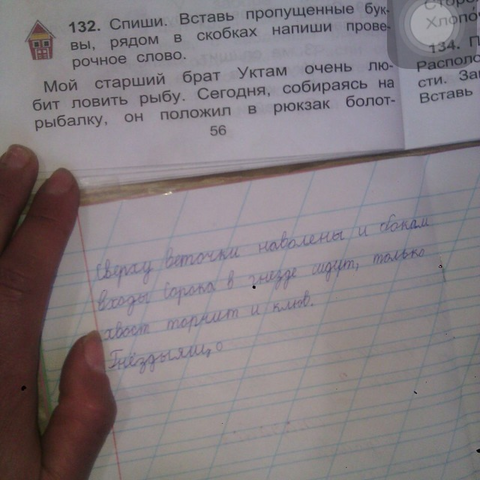 132. Спиши. Вставь пропущенные бук-
вы, рядом в скобках напиши прове-
рочное слово.
Мой старший брат Уктам очень лю-
бит ловить рыбу. Сегодня, собираясь на
рыбалку, он положил в рюкзак болот-
56
Сторо
Хлопо
134. П
Располо
сти. За
Вставь
Сверху веточки навалены и с бокам
входы Сорока в гнезде сидит, только
хвост торчит и клюв.